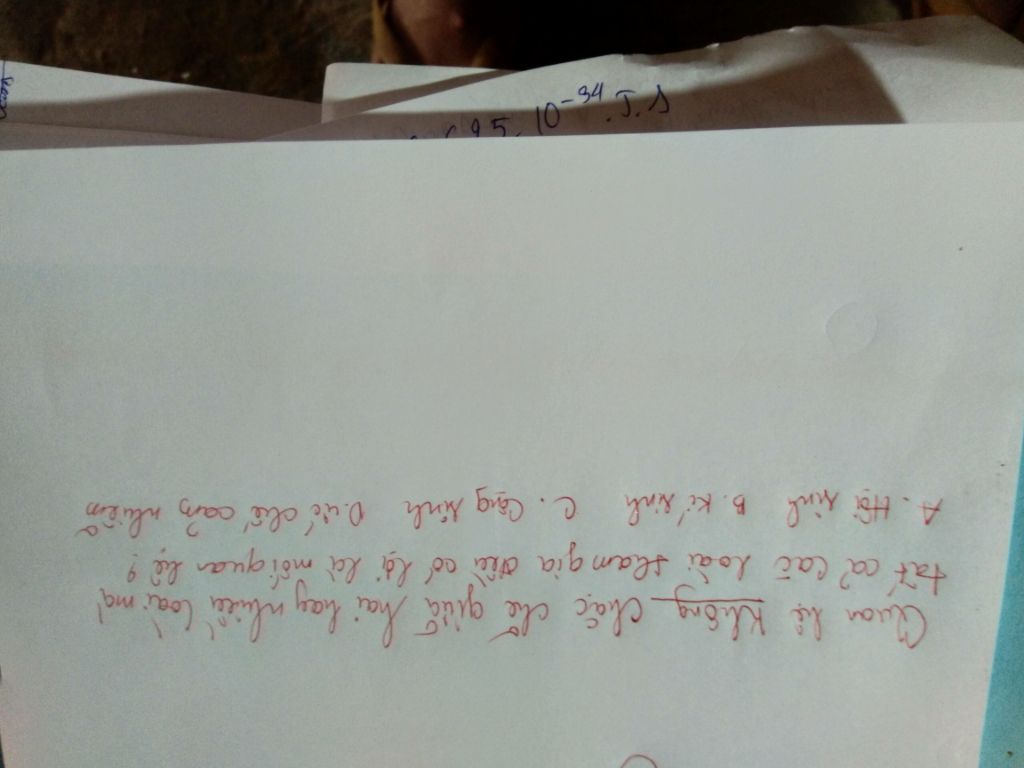 Quan hệ không chặc chẽ giữa hai hay nhiều loài mà
tất cả các loài tham gia đều có lợi là mối quan hệ ?
A. Hội sinh B. Kí sinh C. Cộng sinh D. ức chế cảm nhiễm
25. 10⁻³⁴ .J.s